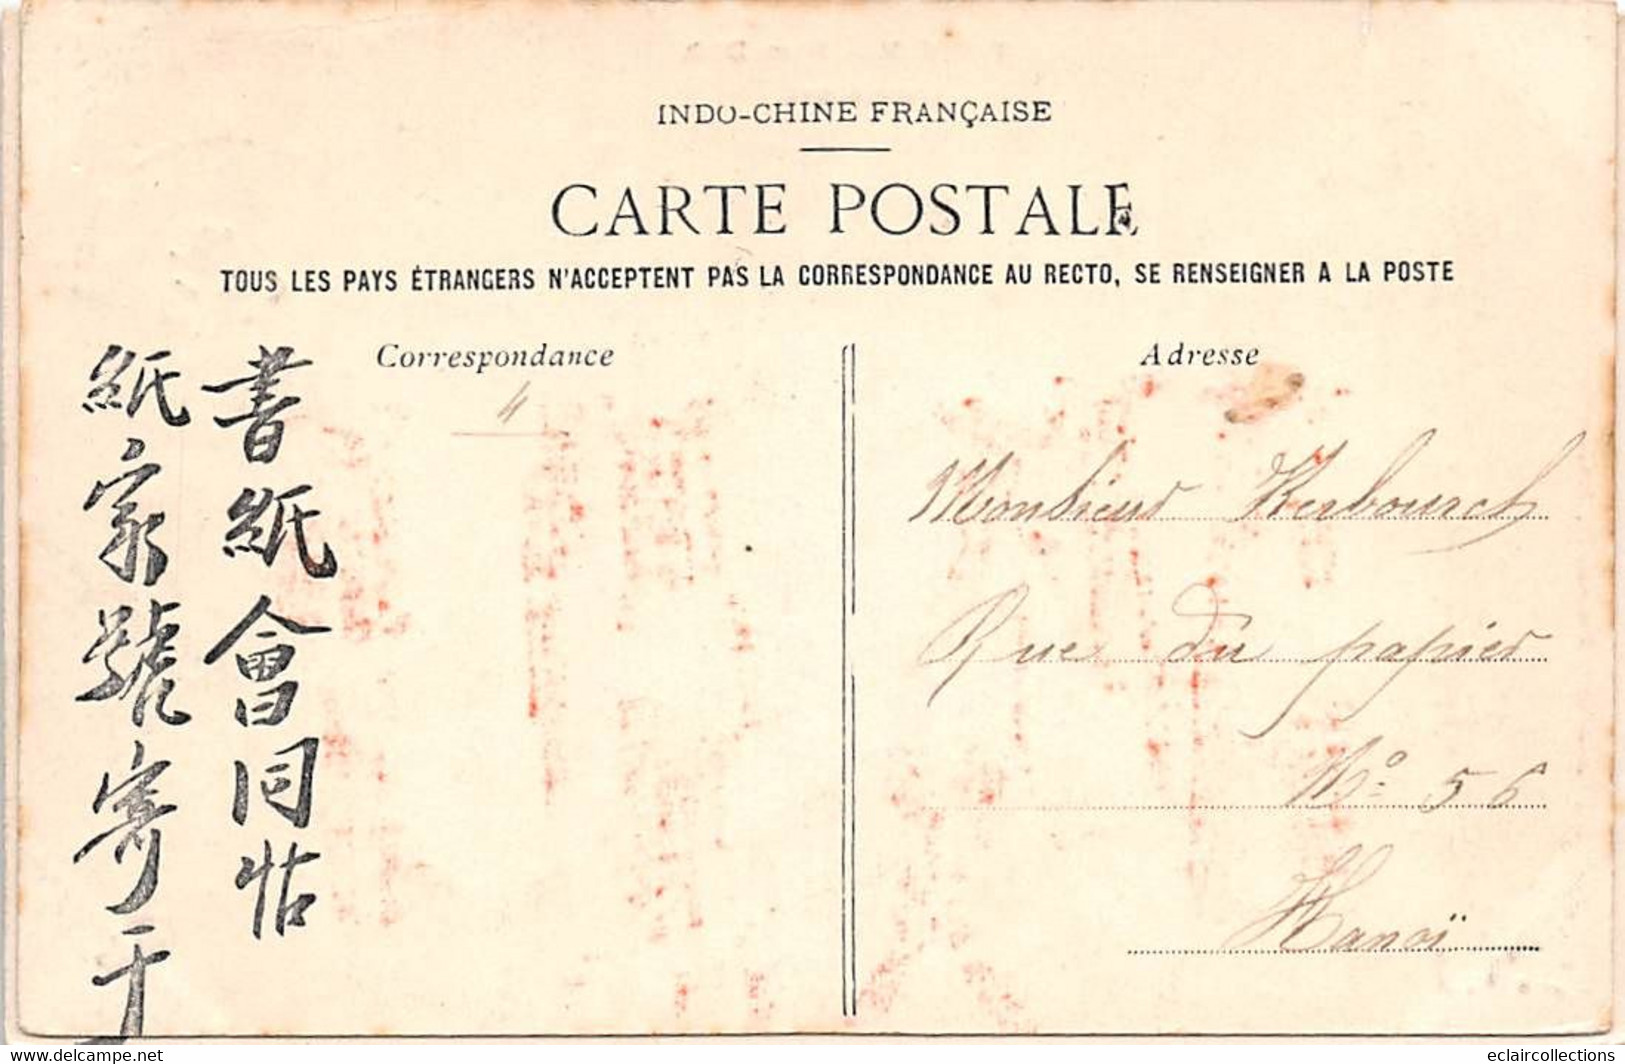 INDO-CHINE FRANÇAISE
CARTE POSTALE
TOUS LES PAYS ÉTRANGERS N'ACCEPTENT PAS LA CORRESPONDANCE AU RECTO, SE RENSEIGNER A LA POSTE
Correspondance
4
書紙會同帖
紙家號寄于
Adresse
Monsieur Kerbourch
Rue du papier
No 56
Hanoï
eclaircollections